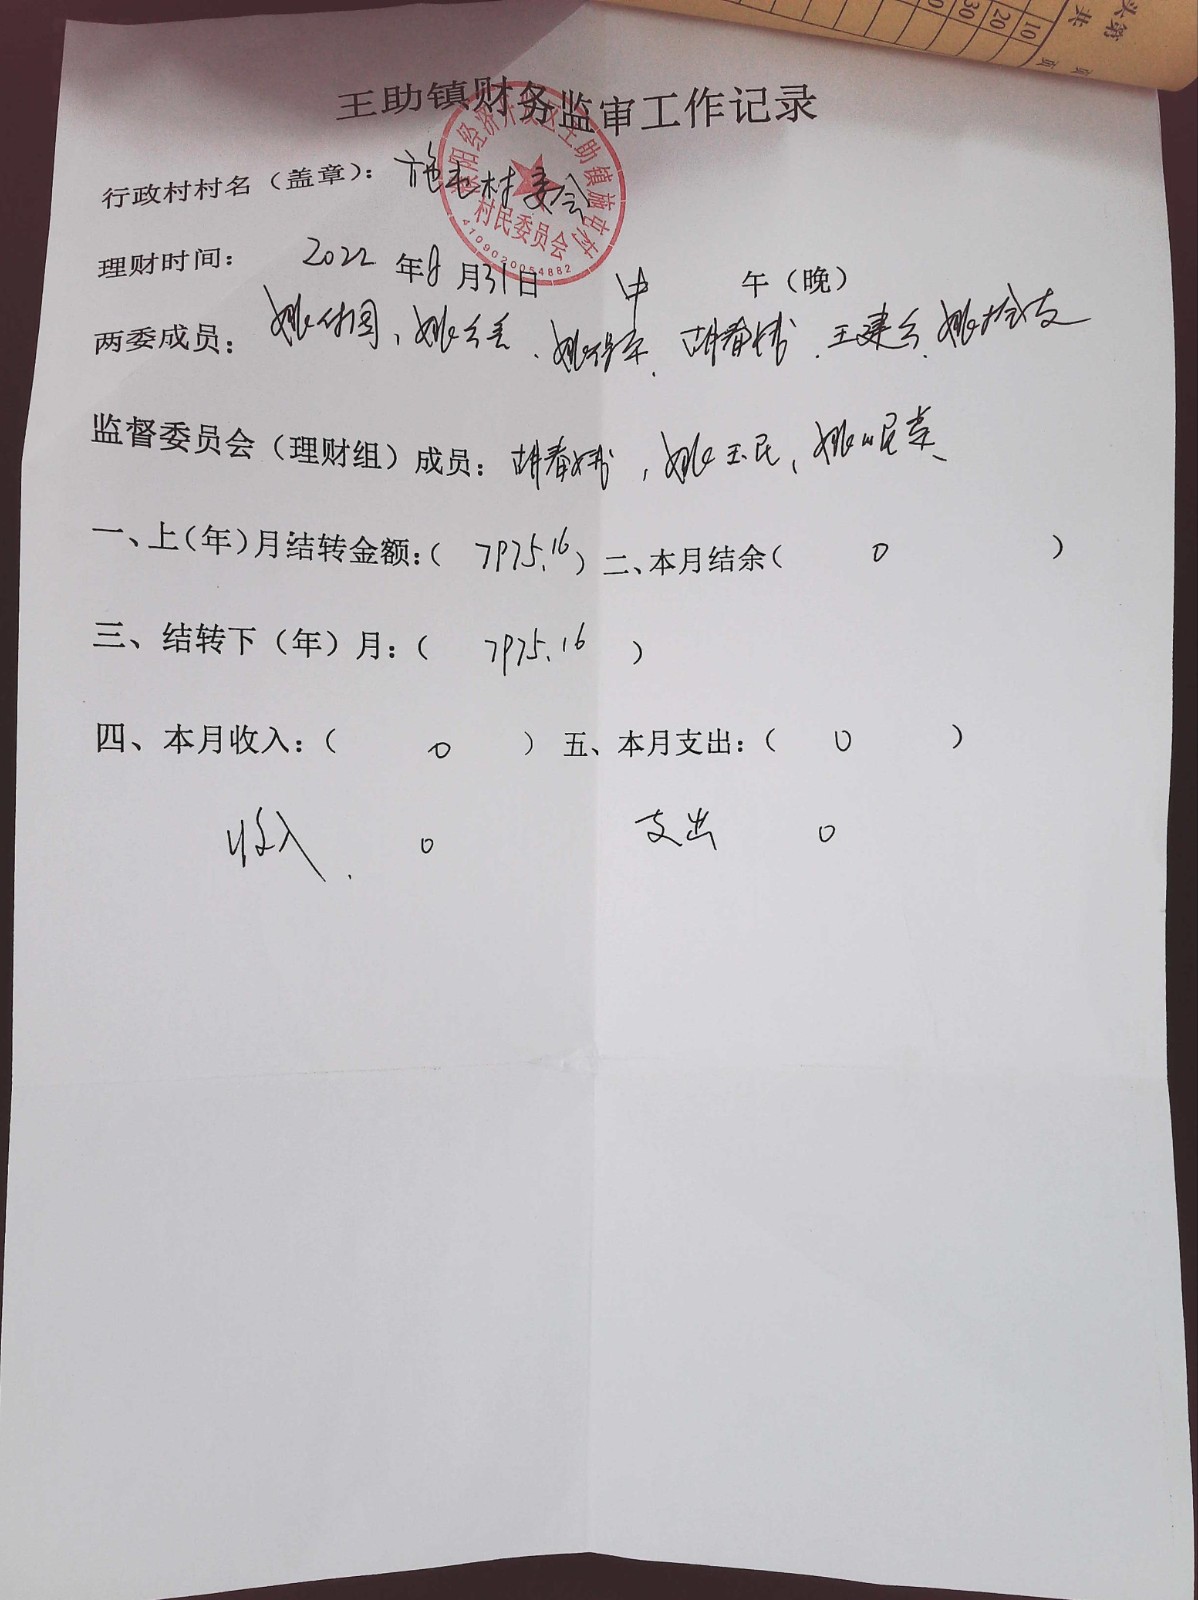 头第
共
页
页
10
20
30
王助镇财务监审工作记录
行政村村名（盖章）：施屯村委会
阳经济开发区王助镇施屯村
村民委员会
4109020054882
理财时间： 2022 年8月31日 中 午（晚）
两委成员： 胡春 、王建
监督委员会（理财组）成员：胡春 ，姚玉民、姚
一、上（年）月结转金额：（ 7975.16 ）二、本月结余（ 0 ）
三、结转下（年）月：（ 7975.16 ）
四、本月收入：（ 0 ） 五、本月支出：（ 0 ）
收入. 0 支出 0